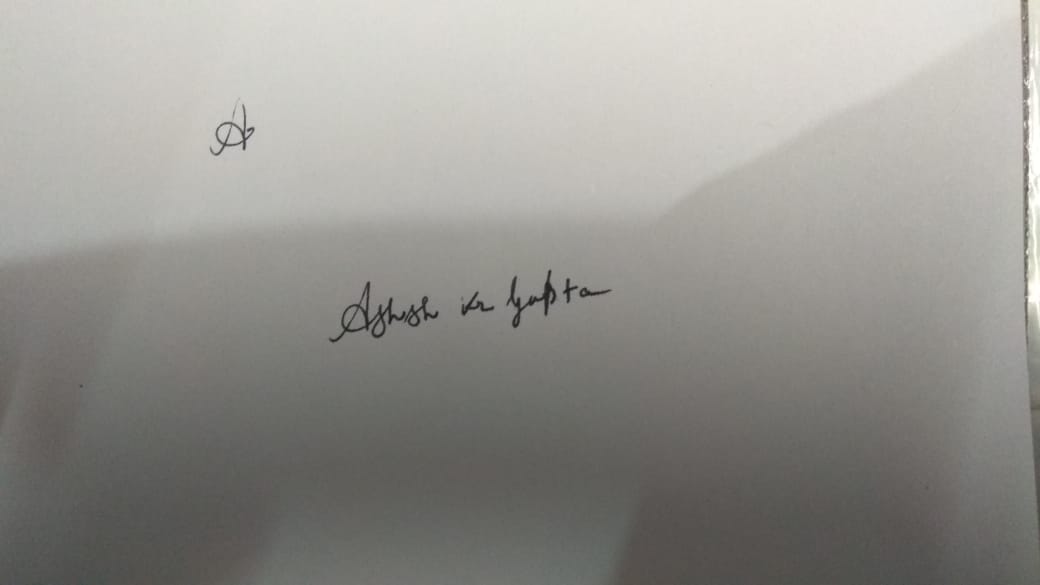 A
Ashish Kr Gupta